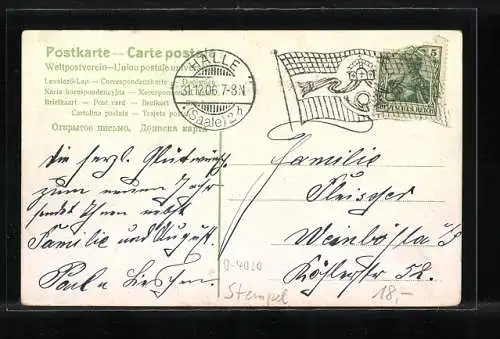 Postkarte — Carte postale
Weltpostverein — Union postale universelle
Levelező-Lap — Correspondenzkarte — Dopisnice
Karta korespondencyjna — Korespondenční
Briefkaart — Post card — Brefkort
Cartolina postale — Tarjeta postal
Открытое письмо. Дописна карта
HALLE
31.12.06.7-8N
(Saale) 2h
5
DEUTSCHES REICH
Die herzl. Glückwünsche
zum neuen Jahr
sendet Ihnen nebst
Familie und August.
Paula
Familie
Fleischer
Weinböhla i/S
Köhlerstr 52.
0-4020
Stempel
18,-